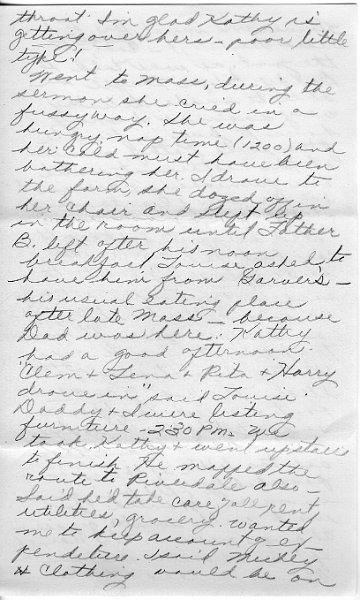 throat. I'm glad Kathy is
getting over hers - poor little
tyke!
Went to Mass, during the
sermon she cried in a
fussy way. She was
hungry, nap time (1200) and
her cold must have been
bothering her. I drove to
the farm, she dozed off in
her chair and slept up
in the room until Father
B. left after his noon
breakfast. Louise asked to
have him from Garver's -
his usual eating place
after late Mass - because
Dad was here. Kathy
had a good afternoon.
"Clem & Lena & Rita & Harry
drove in" said Louise.
Daddy & I were listing
furniture - 2:30 P.M. We
took Kathy & went upstairs
to finish. He mapped the
route to Riverdale also -
Said he'd take care of all rent,
utilities, grocery. Wanted
me to keep account of ex-
penditure. I said Mickey
& Clothing would be on